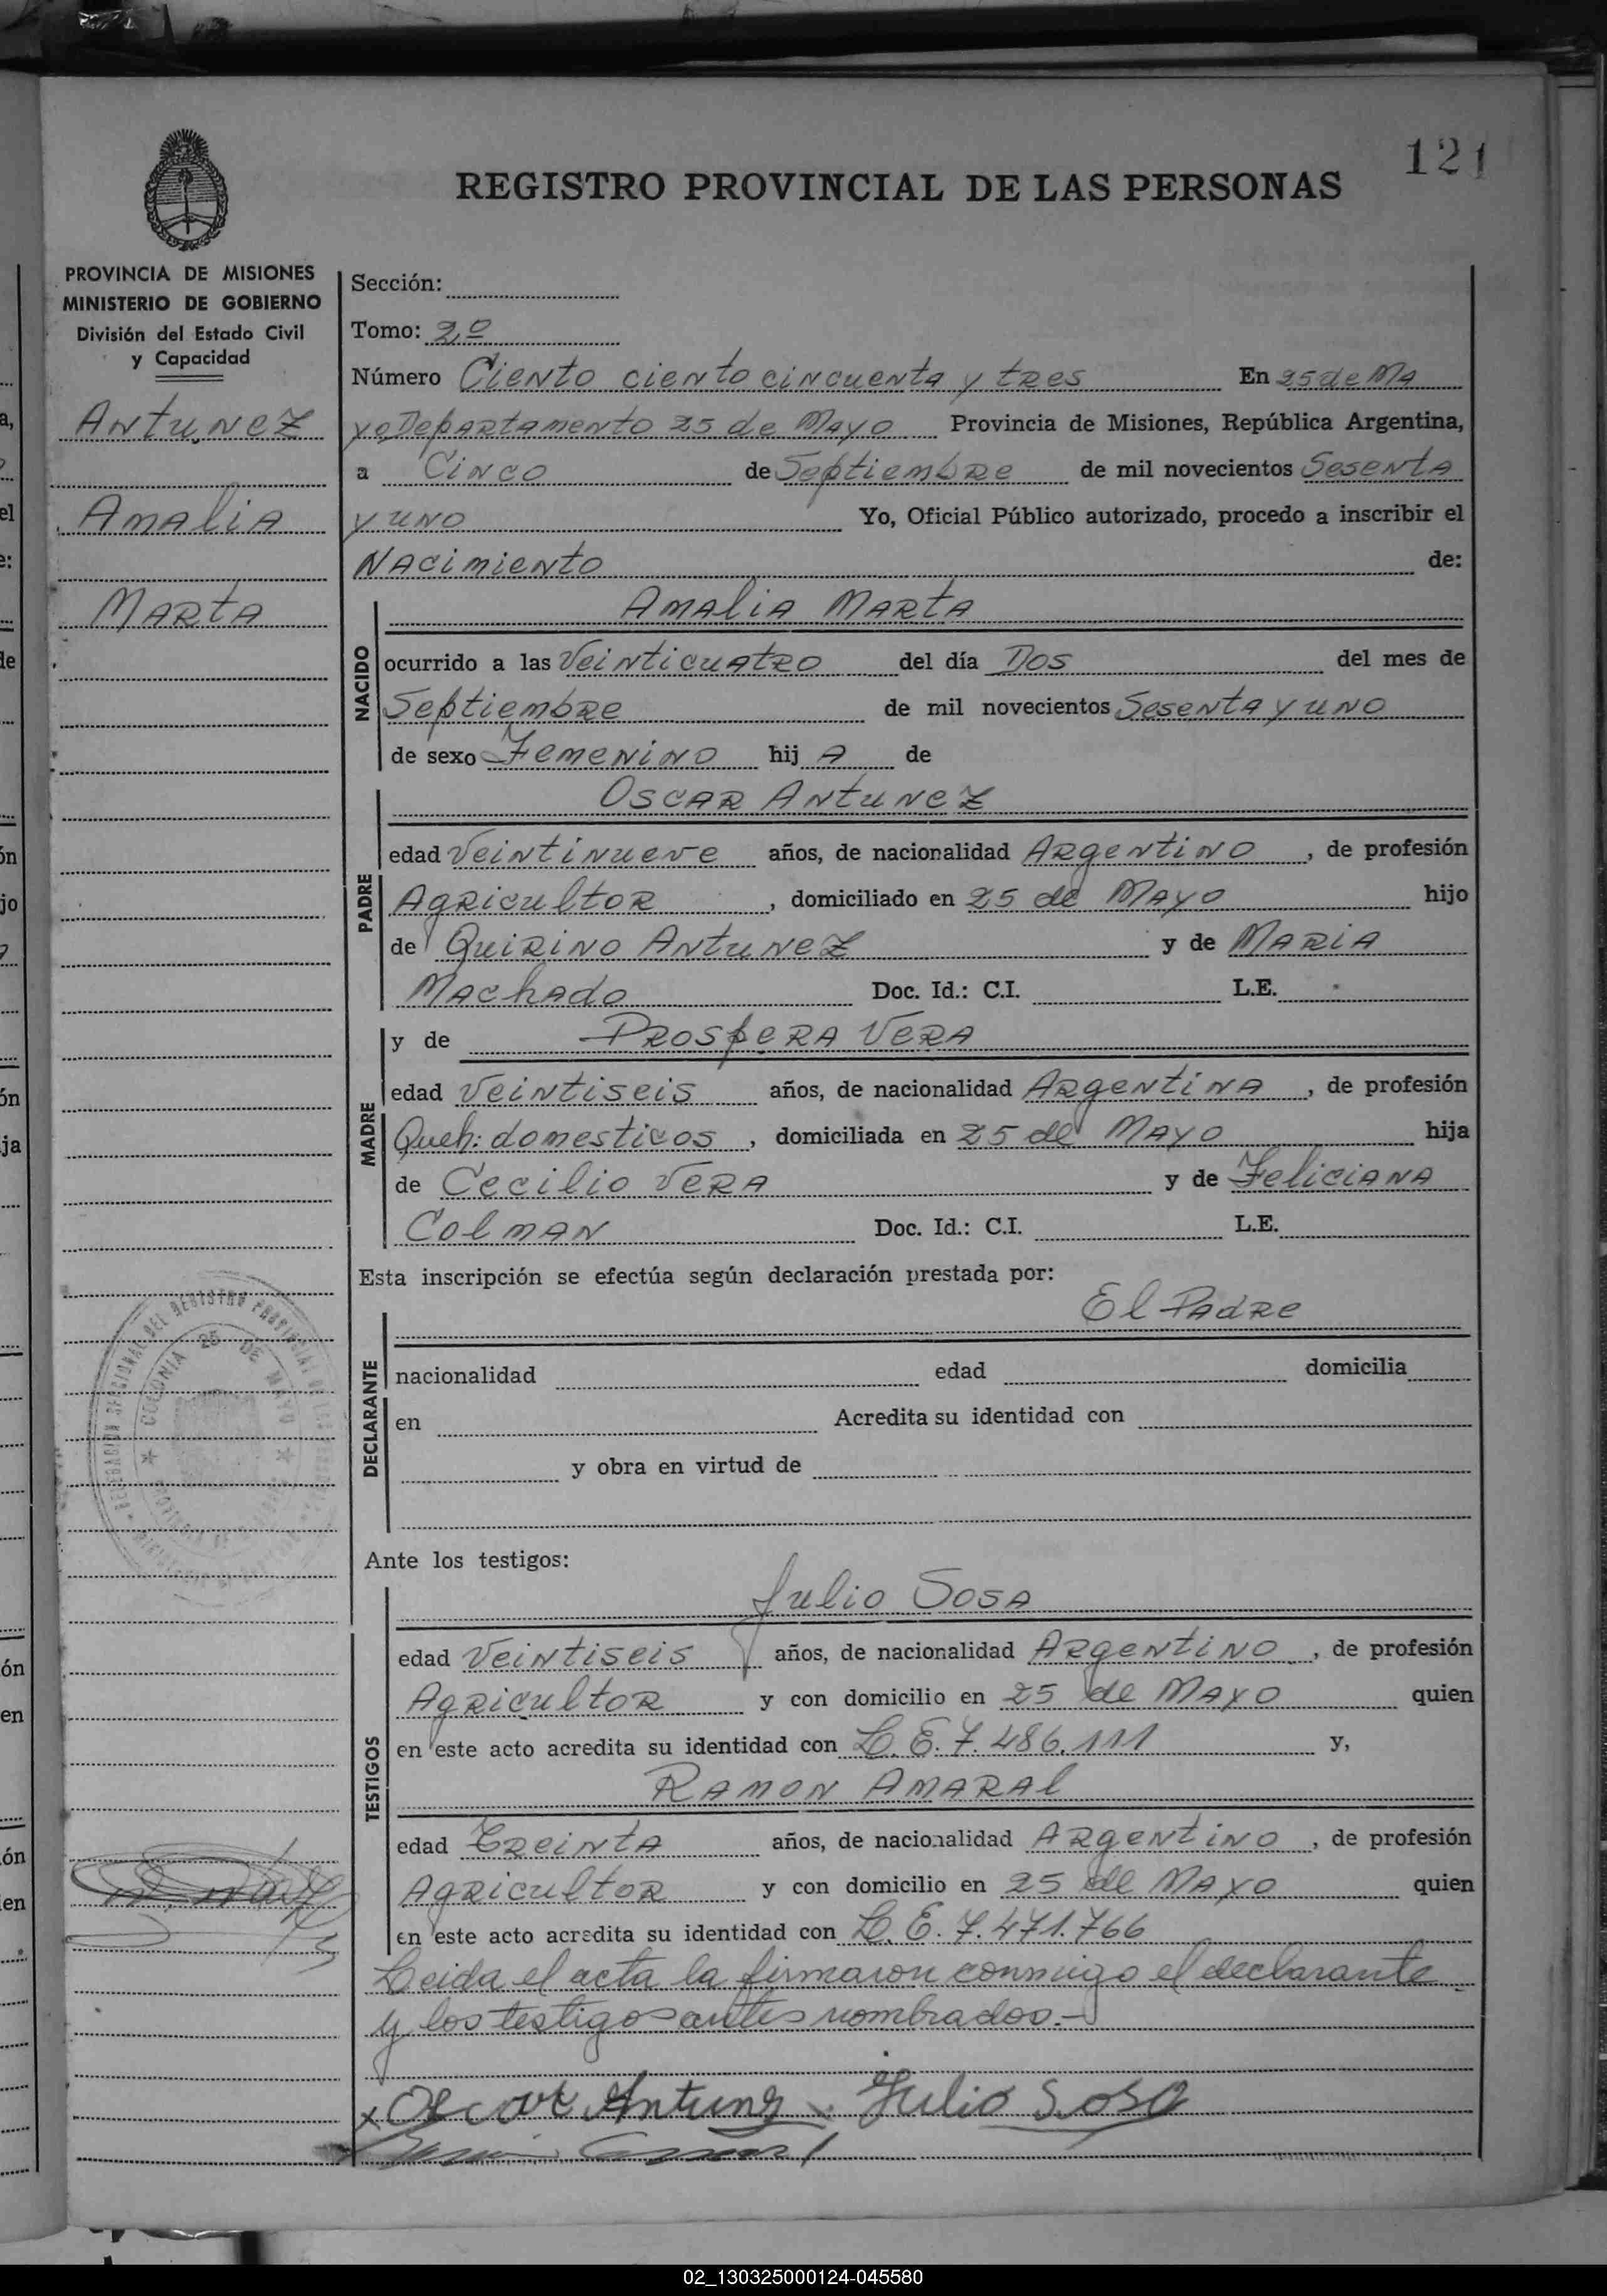 121
REGISTRO PROVINCIAL DE LAS PERSONAS
PROVINCIA DE MISIONES
MINISTERIO DE GOBIERNO
División del Estado Civil
y Capacidad
Antunez
Amalia
Marta
Sección:
Tomo: 2º
Número Ciento ciento cincuenta y tres En 25 de Ma
yo Departamento 25 de Mayo Provincia de Misiones, República Argentina,
a Cinco de Septiembre de mil novecientos Sesenta
y uno Yo, Oficial Público autorizado, procedo a inscribir el
Nacimiento de:
NACIDO
Amalia Marta
ocurrido a las Veinticuatro del día Dos del mes de
Septiembre de mil novecientos Sesenta y uno
de sexo Femenino hij A de
PADRE
Oscar Antunez
edad Veintinueve años, de nacionalidad Argentino, de profesión
Agricultor, domiciliado en 25 de Mayo hijo
de Quirino Antunez y de Maria
Machado Doc. Id.: C.I. L.E.
MADRE
y de Prospera Vera
edad Veintiseis años, de nacionalidad Argentina, de profesión
Queh: domesticos, domiciliada en 25 de Mayo hija
de Cecilio Vera y de Feliciana
Colman Doc. Id.: C.I. L.E.
Esta inscripción se efectúa según declaración prestada por:
El Padre
DECLARANTE
nacionalidad edad domicilia
en Acredita su identidad con
y obra en virtud de
COLONIA 25 DE MAYO
Ante los testigos:
TESTIGOS
Julio Sosa
edad Veintiseis años, de nacionalidad Argentino, de profesión
Agricultor y con domicilio en 25 de Mayo quien
en este acto acredita su identidad con L.E. 7.486.111 y,
Ramon Amaral
edad Treinta años, de nacionalidad Argentino, de profesión
Agricultor y con domicilio en 25 de Mayo quien
en este acto acredita su identidad con L.E. 7.471.766
Leida el acta la firmaron conmigo el declarante
y los testigos antes nombrados.-
x Oscar Antunz Julio Sosa
02_130325000124-045580